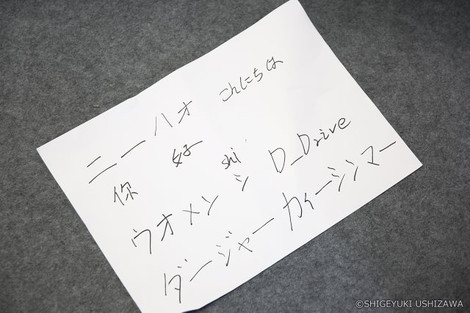 ニーハオ こんにちは
你 好 shi
ウオメンシ D_Drive
ダージャー カイーシンマー
©SHIGEYUKI USHIZAWA